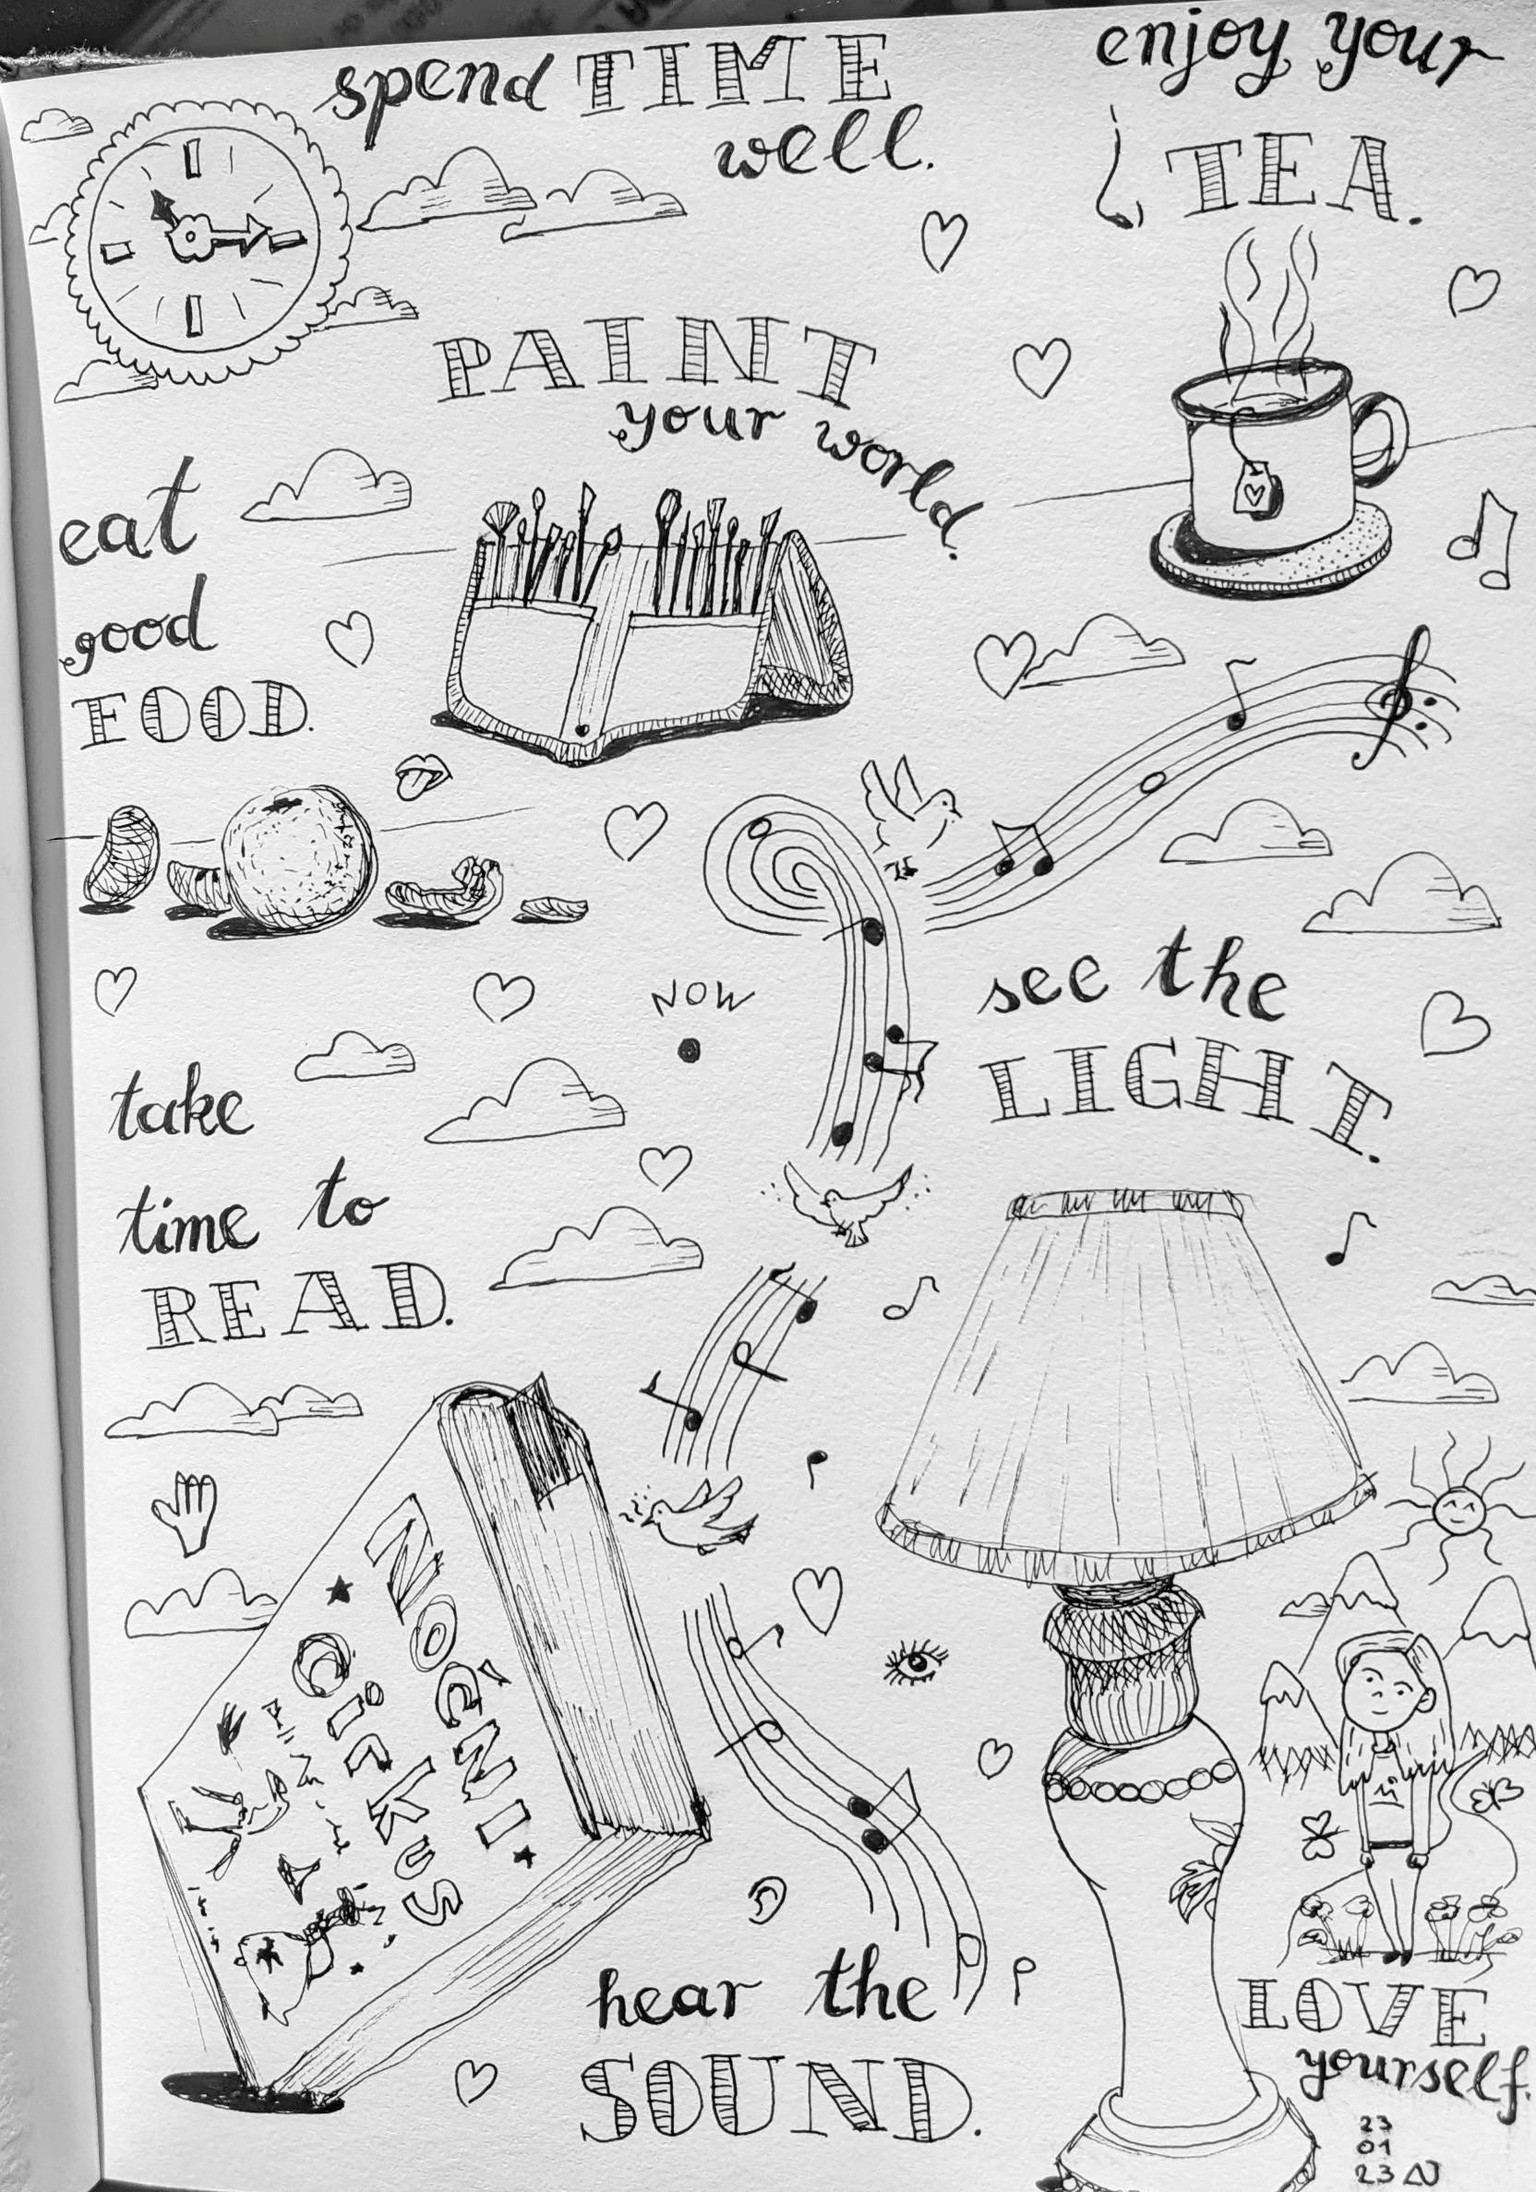 spend TIME
well.
enjoy your
TEA.
PAINT
your world.
eat
good
FOOD.
NOW
see the
LIGHT.
take
time to
READ.
NOĆNI
CirKus
hear the
SOUND.
LOVE
yourself.
23
01
23